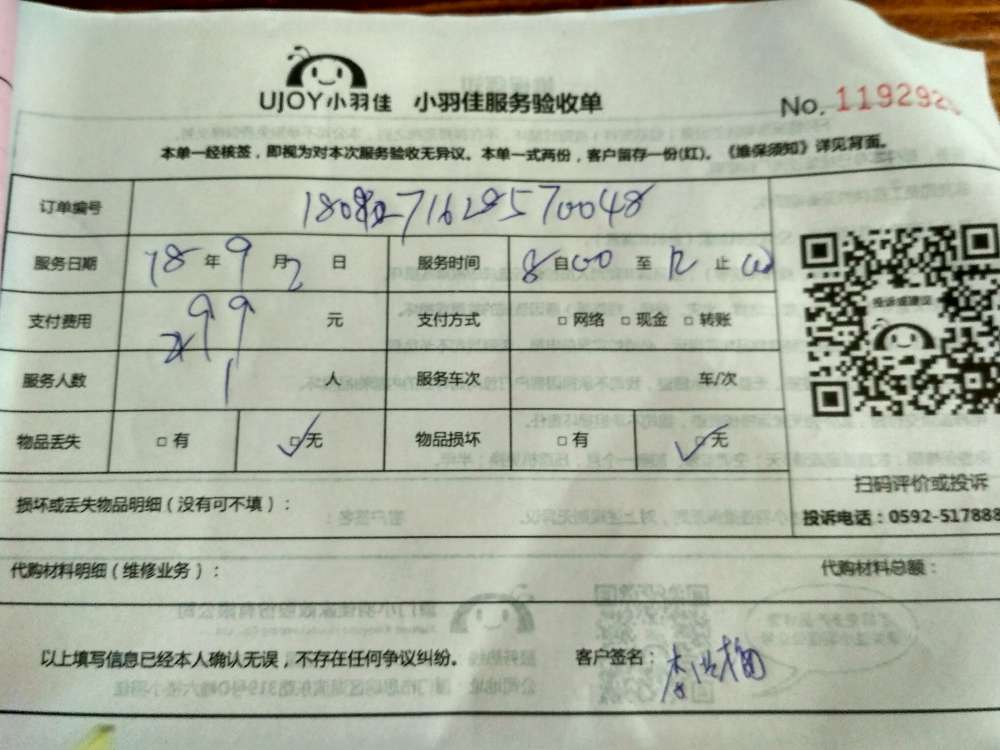 UJOY小羽佳 小羽佳服务验收单 No. 119292
本单一经核签，即视为对本次服务验收无异议。本单一式两份，客户留存一份(红)。《维保须知》详见背面。
订单编号
服务日期 18年9月2日 服务时间 8自00至12止00
支付费用 99元 支付方式 □网络 □现金 □转账
投诉或建议
服务人数 1人 服务车次 车/次
物品丢失 □有 ☑无 物品损坏 □有 ☑无
扫码评价或投诉
损坏或丢失物品明细（没有可不填）：
投诉电话：0592-517888
代购材料明细（维修业务）： 代购材料总额：
以上填写信息已经本人确认无误，不存在任何争议纠纷。 客户签名：